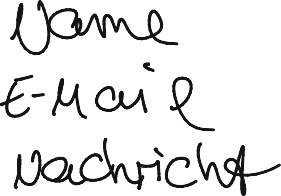 Name
E-Mail
Nachricht